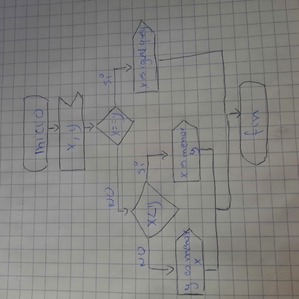 inicio
x, y
x==y
NO
Si
x<y
NO
Si
x es igual que y
y es menor
x
x es menor
y
fin